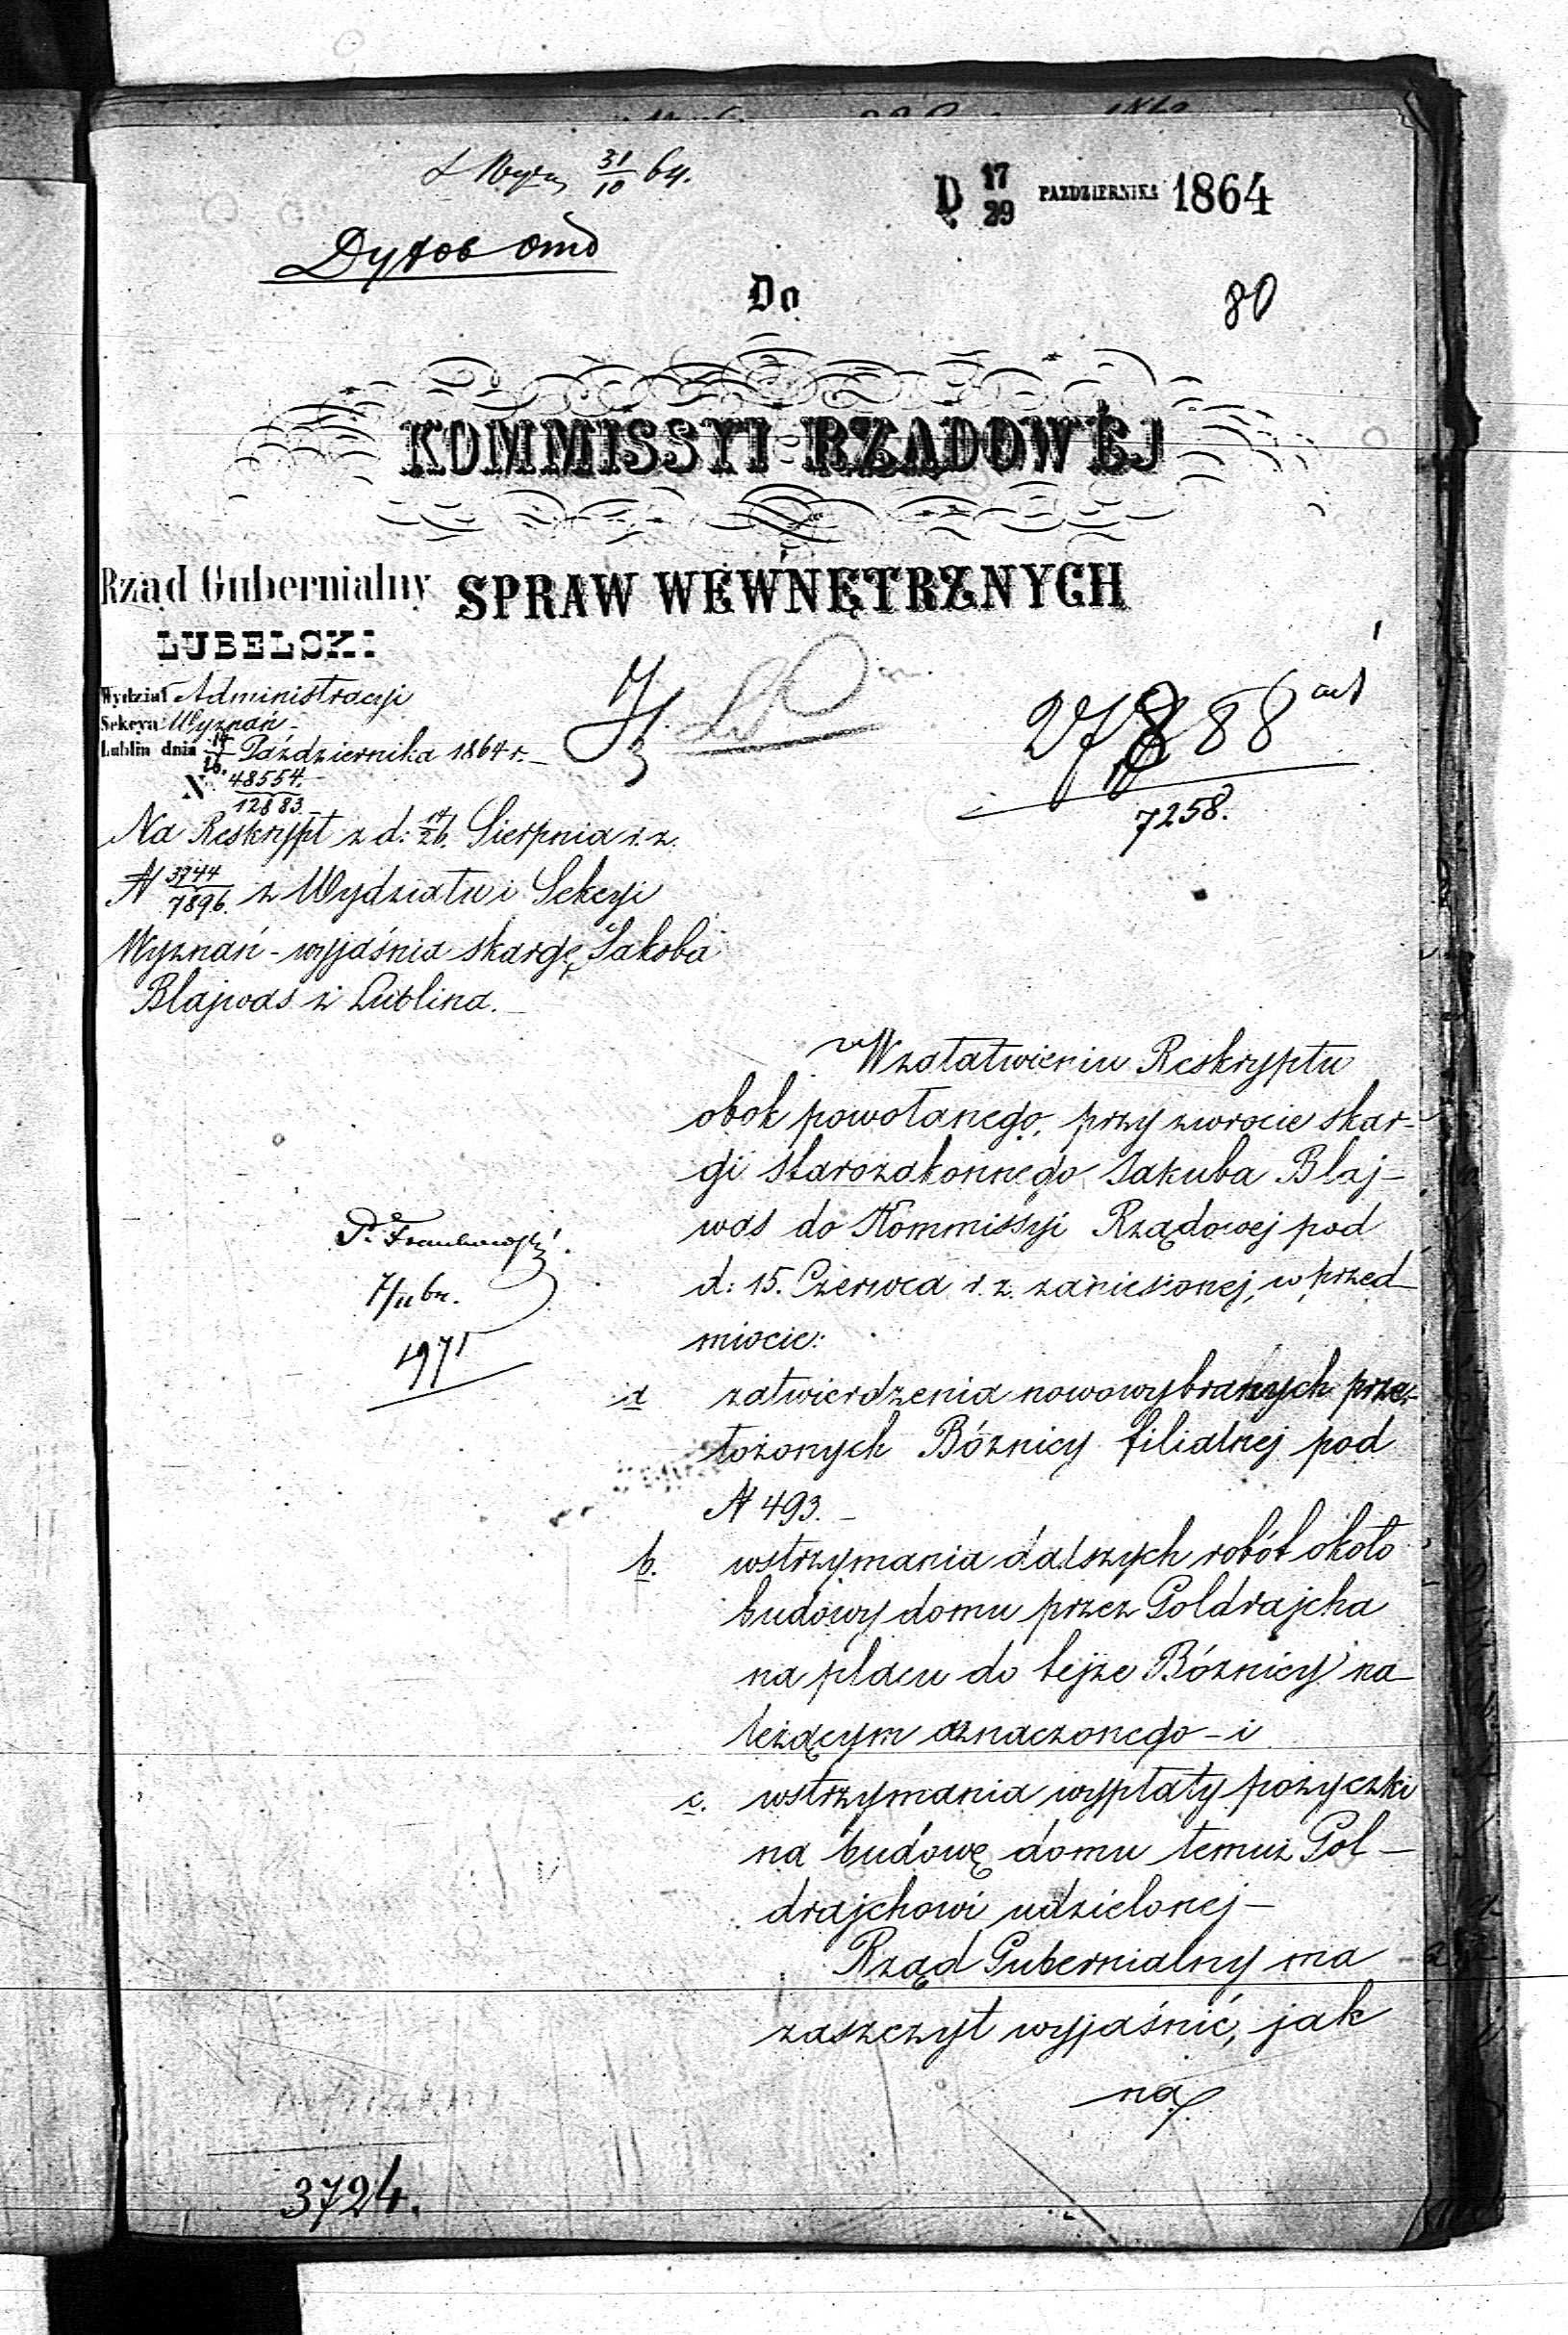 31/10 64.
D 17/29 PAZDZIERNIKA 1864
80
Do
KOMMISSYI RZĄDOWÉJ
SPRAW WEWNĘTRZNYCH
Rząd Gubernialny
LUBELSKI
Wydział Administracyi
Sekcya Wyznań
Lublin dnia 14/26 Października 1864 r.
N 48554/12883
27888
7258.
Na Reskrypt z d: 14/26. Sierpnia r. z.
N 3744/7896. z Wydziału i Sekcyi
Wyznań - wyjaśnia skargę Jakoba
Blajwas z Lublina.
W załatwieniu Reskryptu
obok powołanego, przy zwrocie skar-
gi starozakonnego Jakuba Blaj-
was do Kommissyi Rządowej pod
d: 15. Czerwca r. z. zaniesionej, w przed
miocie:
a zatwierdzenia nowowybranych prze-
łożonych Bóżnicy filialnej pod
N 493. -
b. wstrzymania dalszych robót około
budowy domu przez Goldrajcha
na placu do tejże Bóżnicy na-
leżącym oznaczonego - i
c. wstrzymania wypłaty pożyczki
na budowę domu temuż Gol-
drajchowi udzielonej -
Rząd Gubernialny ma
zaszczyt wyjaśnić, jak
na
7/11 br.
1971
3724.